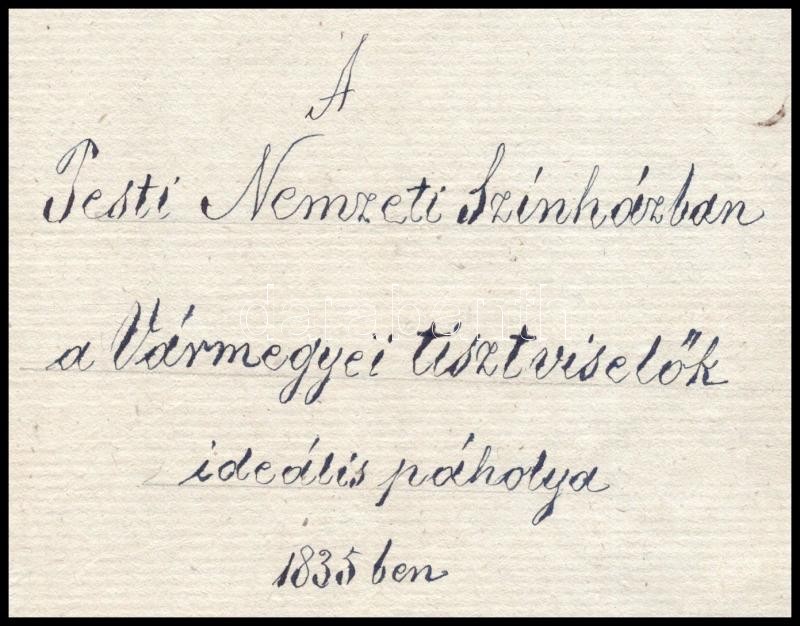 A
Pesti Nemzeti Színházban
darabanth
a Vármegyei tisztviselők
ideális páholya
1835 ben